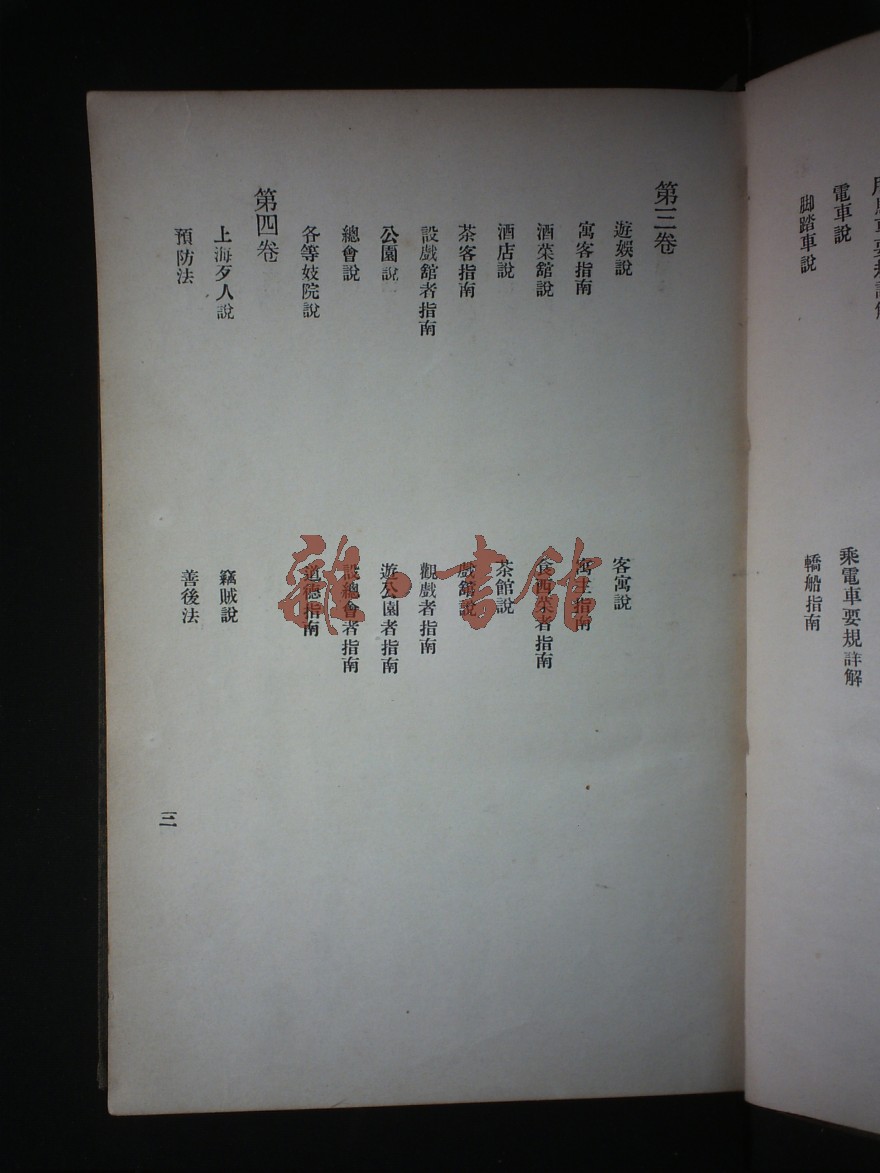 電車說
乘電車要規詳解
脚踏車說
轎船指南
第三卷
遊娛說
客寓說
寓客指南
寓主指南
酒菜舘說
食西菜者指南
酒店說
茶館說
茶客指南
戲舘說
設戲舘者指南
觀戲者指南
公園說
遊公園者指南
總會說
設總會者指南
各等妓院說
道德指南
第四卷
上海歹人說
竊賊說
預防法
善後法
三
雜·書館